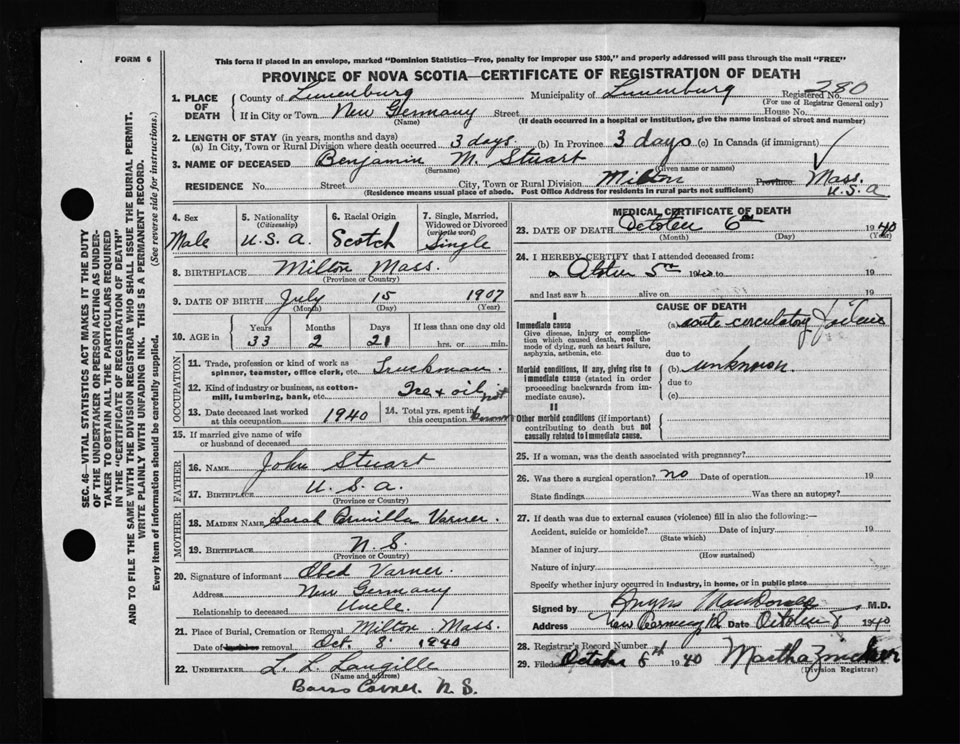 FORM 6
This form if placed in an envelope, marked "Dominion Statistics—Free, penalty for improper use $300," and properly addressed will pass through the mail "FREE"
PROVINCE OF NOVA SCOTIA—CERTIFICATE OF REGISTRATION OF DEATH
SEC. 46—VITAL STATISTICS ACT MAKES IT THE DUTY
OF THE UNDERTAKER OR PERSON ACTING AS UNDER-
TAKER TO OBTAIN ALL THE PARTICULARS REQUIRED
IN THE "CERTIFICATE OF REGISTRATION OF DEATH"
AND TO FILE THE SAME WITH THE DIVISION REGISTRAR WHO SHALL ISSUE THE BURIAL PERMIT.
WRITE PLAINLY WITH UNFADING INK. THIS IS A PERMANENT RECORD.
Every item of information should be carefully supplied. (See reverse side for instructions.)
1. PLACE OF DEATH County of Lunenburg Municipality of Lunenburg Registered No. 280
(For use of Registrar General only)
If in City or Town New Germany Street House No.
(Name) (If death occurred in a hospital or institution, give the name instead of street and number)
2. LENGTH OF STAY (in years, months and days)
(a) In City, Town or Rural Division where death occurred 3 days (b) In Province 3 days (c) In Canada (if immigrant)
3. NAME OF DECEASED Benjamin M. Stuart
(Surname) (Given name or names)
RESIDENCE No. Street City, Town or Rural Division Milton Province Mass. U.S.A
(Residence means usual place of abode. Post Office Address for residents in rural parts not sufficient)
4. Sex Male
5. Nationality (Citizenship) U.S.A.
6. Racial Origin Scotch
7. Single, Married, Widowed or Divorced (write the word) Single
8. BIRTHPLACE Milton Mass.
(Province or Country)
9. DATE OF BIRTH July 15 1907
(Month) (Day) (Year)
10. AGE in Years 33 Months 2 Days 21 If less than one day old hrs. or min.
OCCUPATION
11. Trade, profession or kind of work as spinner, teamster, office clerk, etc. Truckman.
12. Kind of industry or business, as cotton-mill, lumbering, bank, etc. Ice & oil
13. Date deceased last worked at this occupation 1940
14. Total yrs. spent in this occupation not known
15. If married give name of wife or husband of deceased
FATHER
16. NAME John Stuart
17. BIRTHPLACE U.S.A.
(Province or Country)
MOTHER
18. MAIDEN NAME Sarah Varner.
19. BIRTHPLACE N.S.
(Province or Country)
20. Signature of informant Obed Varner.
Address New Germany
Relationship to deceased Uncle.
21. Place of Burial, Cremation or Removal Milton Mass.
Date of burial or removal Oct. 8 1940
22. UNDERTAKER L. L. Langille
(Name and address)
Barss Corner. N.S.
MEDICAL CERTIFICATE OF DEATH
23. DATE OF DEATH October 6th 1940
(Month) (Day) (Year)
24. I HEREBY CERTIFY that I attended deceased from:
October 5th 19 to 19
and last saw h alive on 19
CAUSE OF DEATH
I
Immediate cause
Give disease, injury or complication which caused death, not the mode of dying, such as heart failure, asphyxia, asthenia, etc
(a) acute circulatory failure
due to
Morbid conditions, if any, giving rise to immediate cause (stated in order proceeding backwards from immediate cause).
(b) unknown.
due to
(c)
II
Other morbid conditions (if important) contributing to death but not causally related to immediate cause.
25. If a woman, was the death associated with pregnancy?
26. Was there a surgical operation? no Date of operation 19
State findings Was there an autopsy?
27. If death was due to external causes (violence) fill in also the following:—
Accident, suicide or homicide? Date of injury 19
(State which)
Manner of injury
(How sustained)
Nature of injury
Specify whether injury occurred in industry, in home, or in public place
Signed by Angus MacDonald M.D.
Address New Germany Date October 8 1940
28. Registrar's Record Number
29. Filed October 8th 1940 Martha
(Division Registrar)